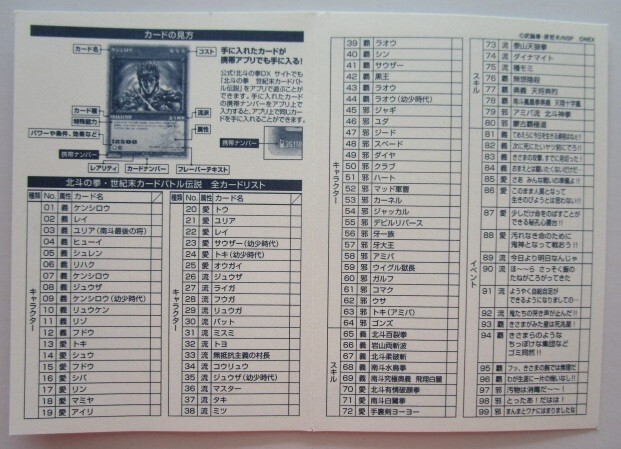 カードの見方
カード名
コスト
カード種
特殊能力
パワーや条件、効果など
携帯ナンバー
流派
属性
レアリティ
カードナンバー
フレーバーテキスト
手に入れたカードが
携帯アプリでも手に入る!
公式!北斗の拳DX サイトでも
「北斗の拳 世紀末カードバト
ル伝説」をアプリで遊ぶことが
できます。手に入れたカード
の携帯ナンバーをアプリ上で
入力すると、アプリ上で同じカー
ドを手に入れることができます。
携帯ナンバー
北斗の拳・世紀末カードバトル伝説 全カードリスト
種類 No. 属性 カード名
キャラクター
01 義 ケンシロウ
02 義 レイ
03 義 ユリア(南斗最後の将)
04 義 ヒューイ
05 義 シュレン
06 義 リハク
07 義 ケンシロウ
08 義 ジュウザ
09 義 ケンシロウ(幼少時代)
10 義 リュウケン
11 義 リゾ
12 義 フドウ
13 愛 トキ
14 愛 シュウ
15 愛 フドウ
16 愛 シバ
17 愛 リン
18 愛 マミヤ
19 愛 アイリ
種類 No. 属性 カード名
キャラクター
20 愛 トウ
21 愛 ユリア
22 愛 レイ
23 愛 サウザー(幼少時代)
24 愛 トキ(幼少時代)
25 愛 オウガイ
26 流 ジュウザ
27 流 ライガ
28 流 フウガ
29 流 リュウガ
30 流 バット
31 流 ミスミ
32 流 トヨ
33 流 無抵抗主義の村長
34 流 コウリュウ
35 流 ジュウザ(幼少時代)
36 流 マスター
37 流 タキ
38 流 ミツ
キャラクター
39 覇 ラオウ
40 覇 シン
41 覇 サウザー
42 覇 黒王
43 覇 ラオウ
44 覇 ラオウ(幼少時代)
45 邪 ジャギ
46 邪 ユダ
47 邪 ジード
48 邪 スペード
49 邪 ダイヤ
50 邪 クラブ
51 邪 ハート
52 邪 マッド軍曹
53 邪 カーネル
54 邪 ジャッカル
55 邪 デビルリバース
56 邪 牙一族
57 邪 牙大王
58 邪 アミバ
59 邪 ウイグル獄長
60 邪 ガルフ
61 邪 コマク
62 邪 ウサ
63 邪 トキ(アミバ)
64 邪 ゴンズ
スキル
65 義 北斗百裂拳
66 義 岩山両斬波
67 義 北斗柔破斬
68 義 南斗水鳥拳
69 義 南斗究極奥義 飛翔白麗
70 愛 北斗有情破顔拳
71 愛 南斗白鷺拳
72 愛 手裏剣ヨーヨー
スキル
73 流 泰山天狼拳
74 流 ダイナマイト
75 流 種モミ
76 覇 無想陰殺
77 覇 奥義 天将奔烈
78 覇 南斗鳳凰拳奥義 天翔十字鳳
79 邪 アミバ流 北斗神拳
80 邪 蒙古覇極道
イベント
81 義 てめえらに今日を生きる資格はねえ!!
82 義 次に死にたいヤツ前にでろ!!
83 義 きさまの攻撃、すでに見切った!
84 義 おまえとは闘いたくないだけだ…
85 義 さあ みんな戦いの準備よ!!
86 愛 このまま人質となって
生きのびようとは思わない!!
87 愛 少しだけ命をのばすことが
できる秘孔心霊台!!
88 愛 汚れなき命のために
鬼神となって戦おう!!
89 流 今日より明日なんじゃ
90 流 ほ〜〜ら さっそく飯の
たねがころがってきた
91 流 ようやく自給自足が
できるようになりましての…
92 流 俺たちの哭き声が止んだ!!
93 覇 きさまがみた星は死兆星!
94 覇 きさまらのような
ちっぽけな集団など
ゴミ同然!!
95 覇 フッ、きさまの腕では無理だ
96 覇 わが生涯に一片の悔いなし!!
97 邪 汚物は消毒だ〜〜!
98 邪 とったあ!だはは!
99 邪 まんまとワナにはまりましたな